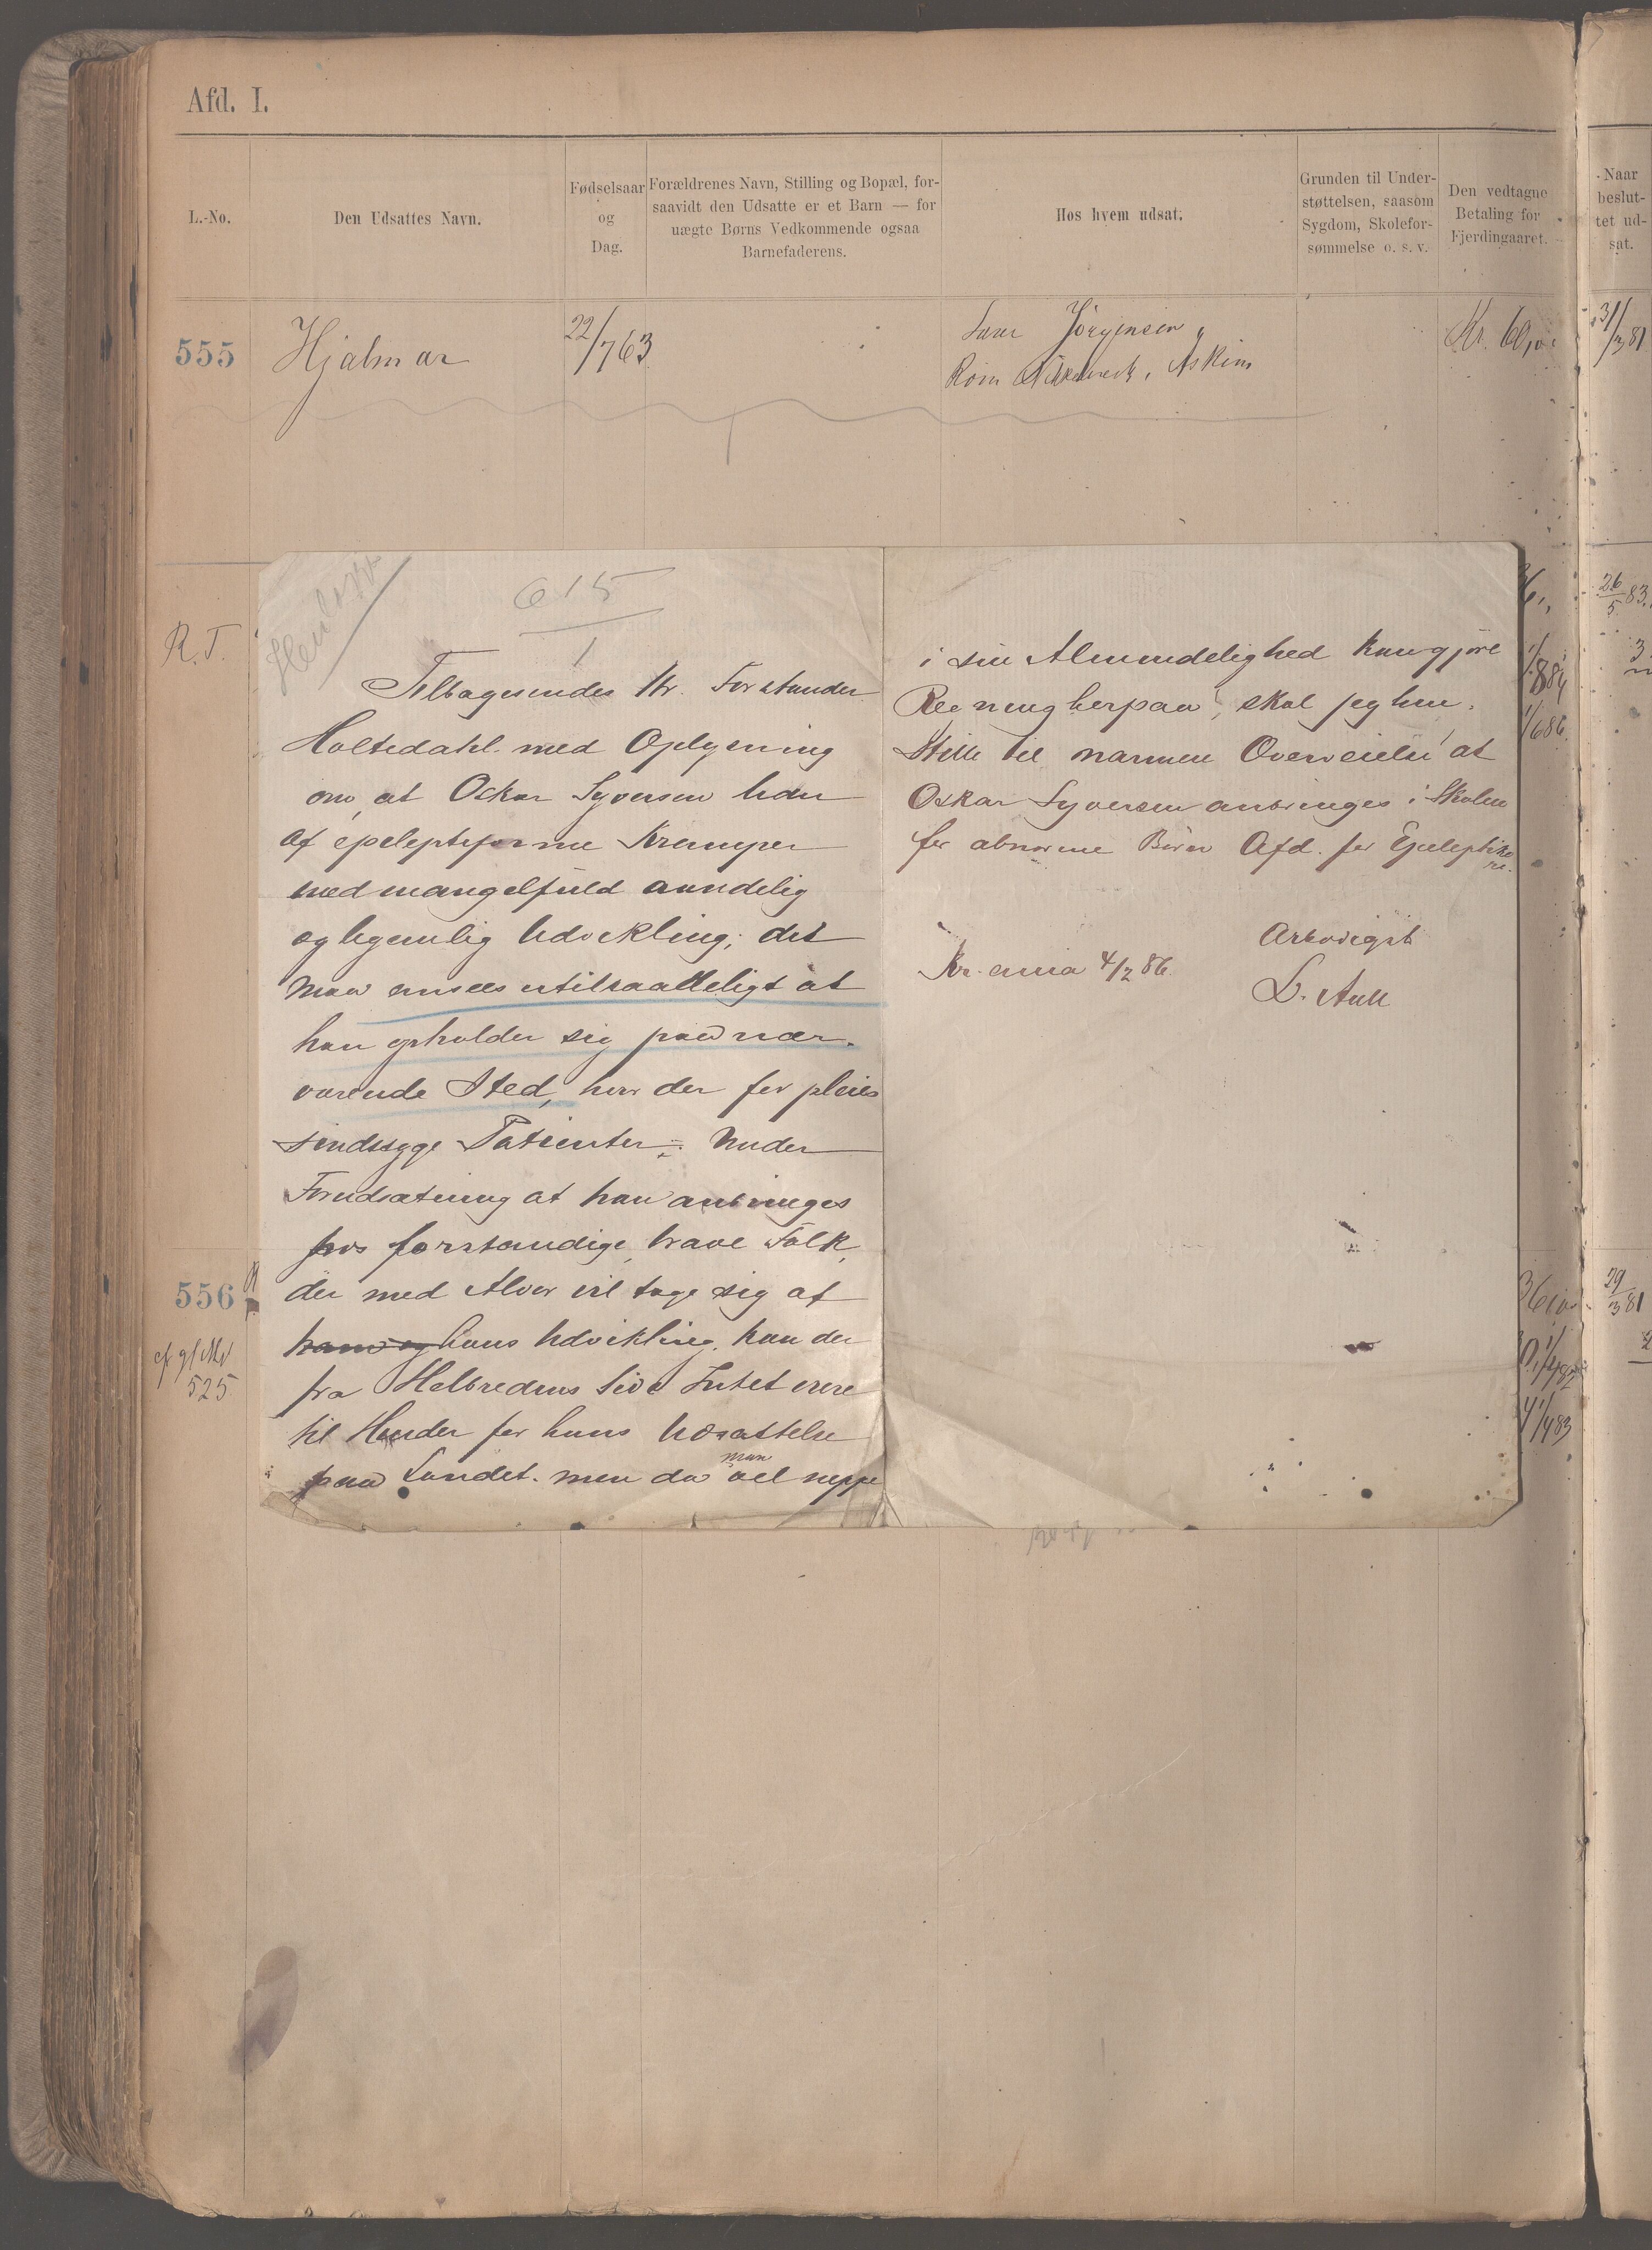 Afd. I.
L.-No.
Den Udsattes Navn.
Fødselsaar
og
Dag.
Forældrenes Navn, Stilling og Bopæl, for-
saavidt den Udsatte er et Barn — for
uægte Børns Vedkommende ogsaa
Barnefaderens.
Hos hvem udsat.
Grunden til Under-
støttelsen, saasom
Sygdom, Skolefor-
sømmelse o. s. v.
Den vedtagne
Betaling for
Fjerdingaaret.
Naar
beslut-
tet ud-
sat.
555
Hjalmar
22/7 63
Jörgensen
Askim
Kr. 60,
31/3 81
R. T.
26/5 83
615
1
Tilbagesendes Hr. Forstander
Holtedahl med Oplysning
om, at Oskar Syversen lider
af epileptiforme Kramper
med mangelfuld aandelig
og legemlig Udvikling; det
maa ansees utilraadeligt at
han opholder sig paa nær-
værende Sted, hvor der før pleies
sindssyge Patienter. Under
Forudsætning at han anbringes
hos forstandige, brave Folk,
der med Alvor vil tage sig af
ham og hans Udvikling, kan der
fra Helbredens Side Intet være
til Hinder for hans Udsættelse
paa Landet. men da man vel neppe
i sin Almindelighed kan gjøre
Regning herpaa, skal jeg hen-
stille til nærmere Overveielse at
Oskar Syversen anbringes i Skolen
for abnorme Børn Afd. for Epileptike
re.
Ærbødigst
Kr.ania 4/2 86.
556
525
29/3 81
1/4 83